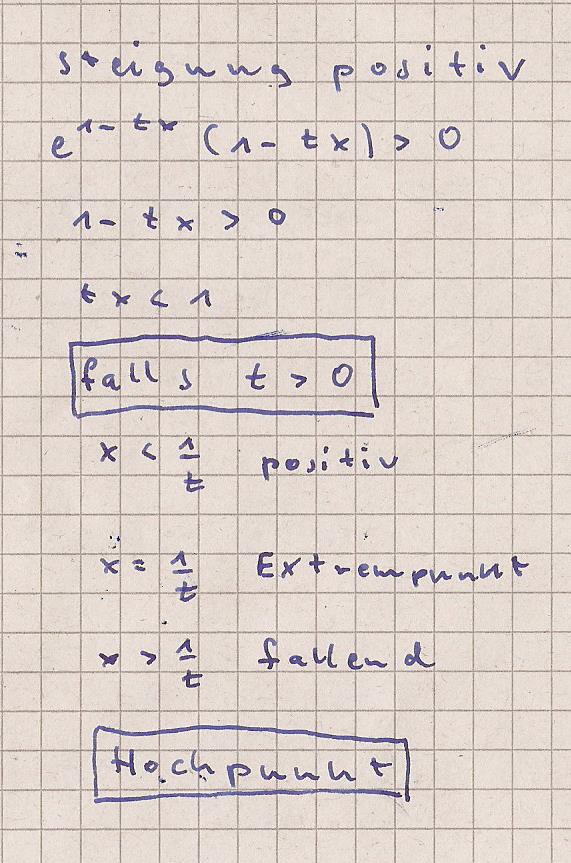 steigung positiv
e^1-tx (1-tx) > 0
1-tx > 0
tx < 1
falls t > 0
x < 1/t positiv
x = 1/t Extrempunkt
x > 1/t fallend
Hochpunkt